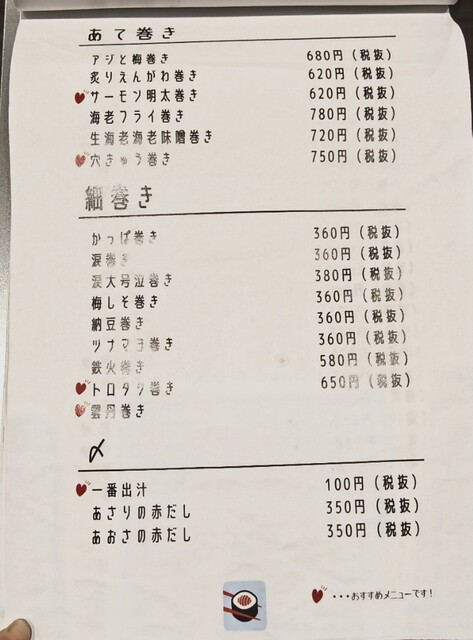 あて巻き
アジと梅巻き 680円（税抜）
炙りえんがわ巻き 620円（税抜）
サーモン明太巻き 620円（税抜）
海老フライ巻き 780円（税抜）
生海老海老味噌巻き 720円（税抜）
穴きゅう巻き 750円（税抜）
細巻き
かっぱ巻き 360円（税抜）
涙巻き 360円（税抜）
涙大号泣巻き 380円（税抜）
梅しそ巻き 360円（税抜）
納豆巻き 360円（税抜）
ツナマヨ巻き 360円（税抜）
鉄火巻き 580円（税抜）
トロタク巻き 650円（税抜）
雲丹巻き
〆
一番出汁 100円（税抜）
あさりの赤だし 350円（税抜）
あおさの赤だし 350円（税抜）
・・・おすすめメニューです！